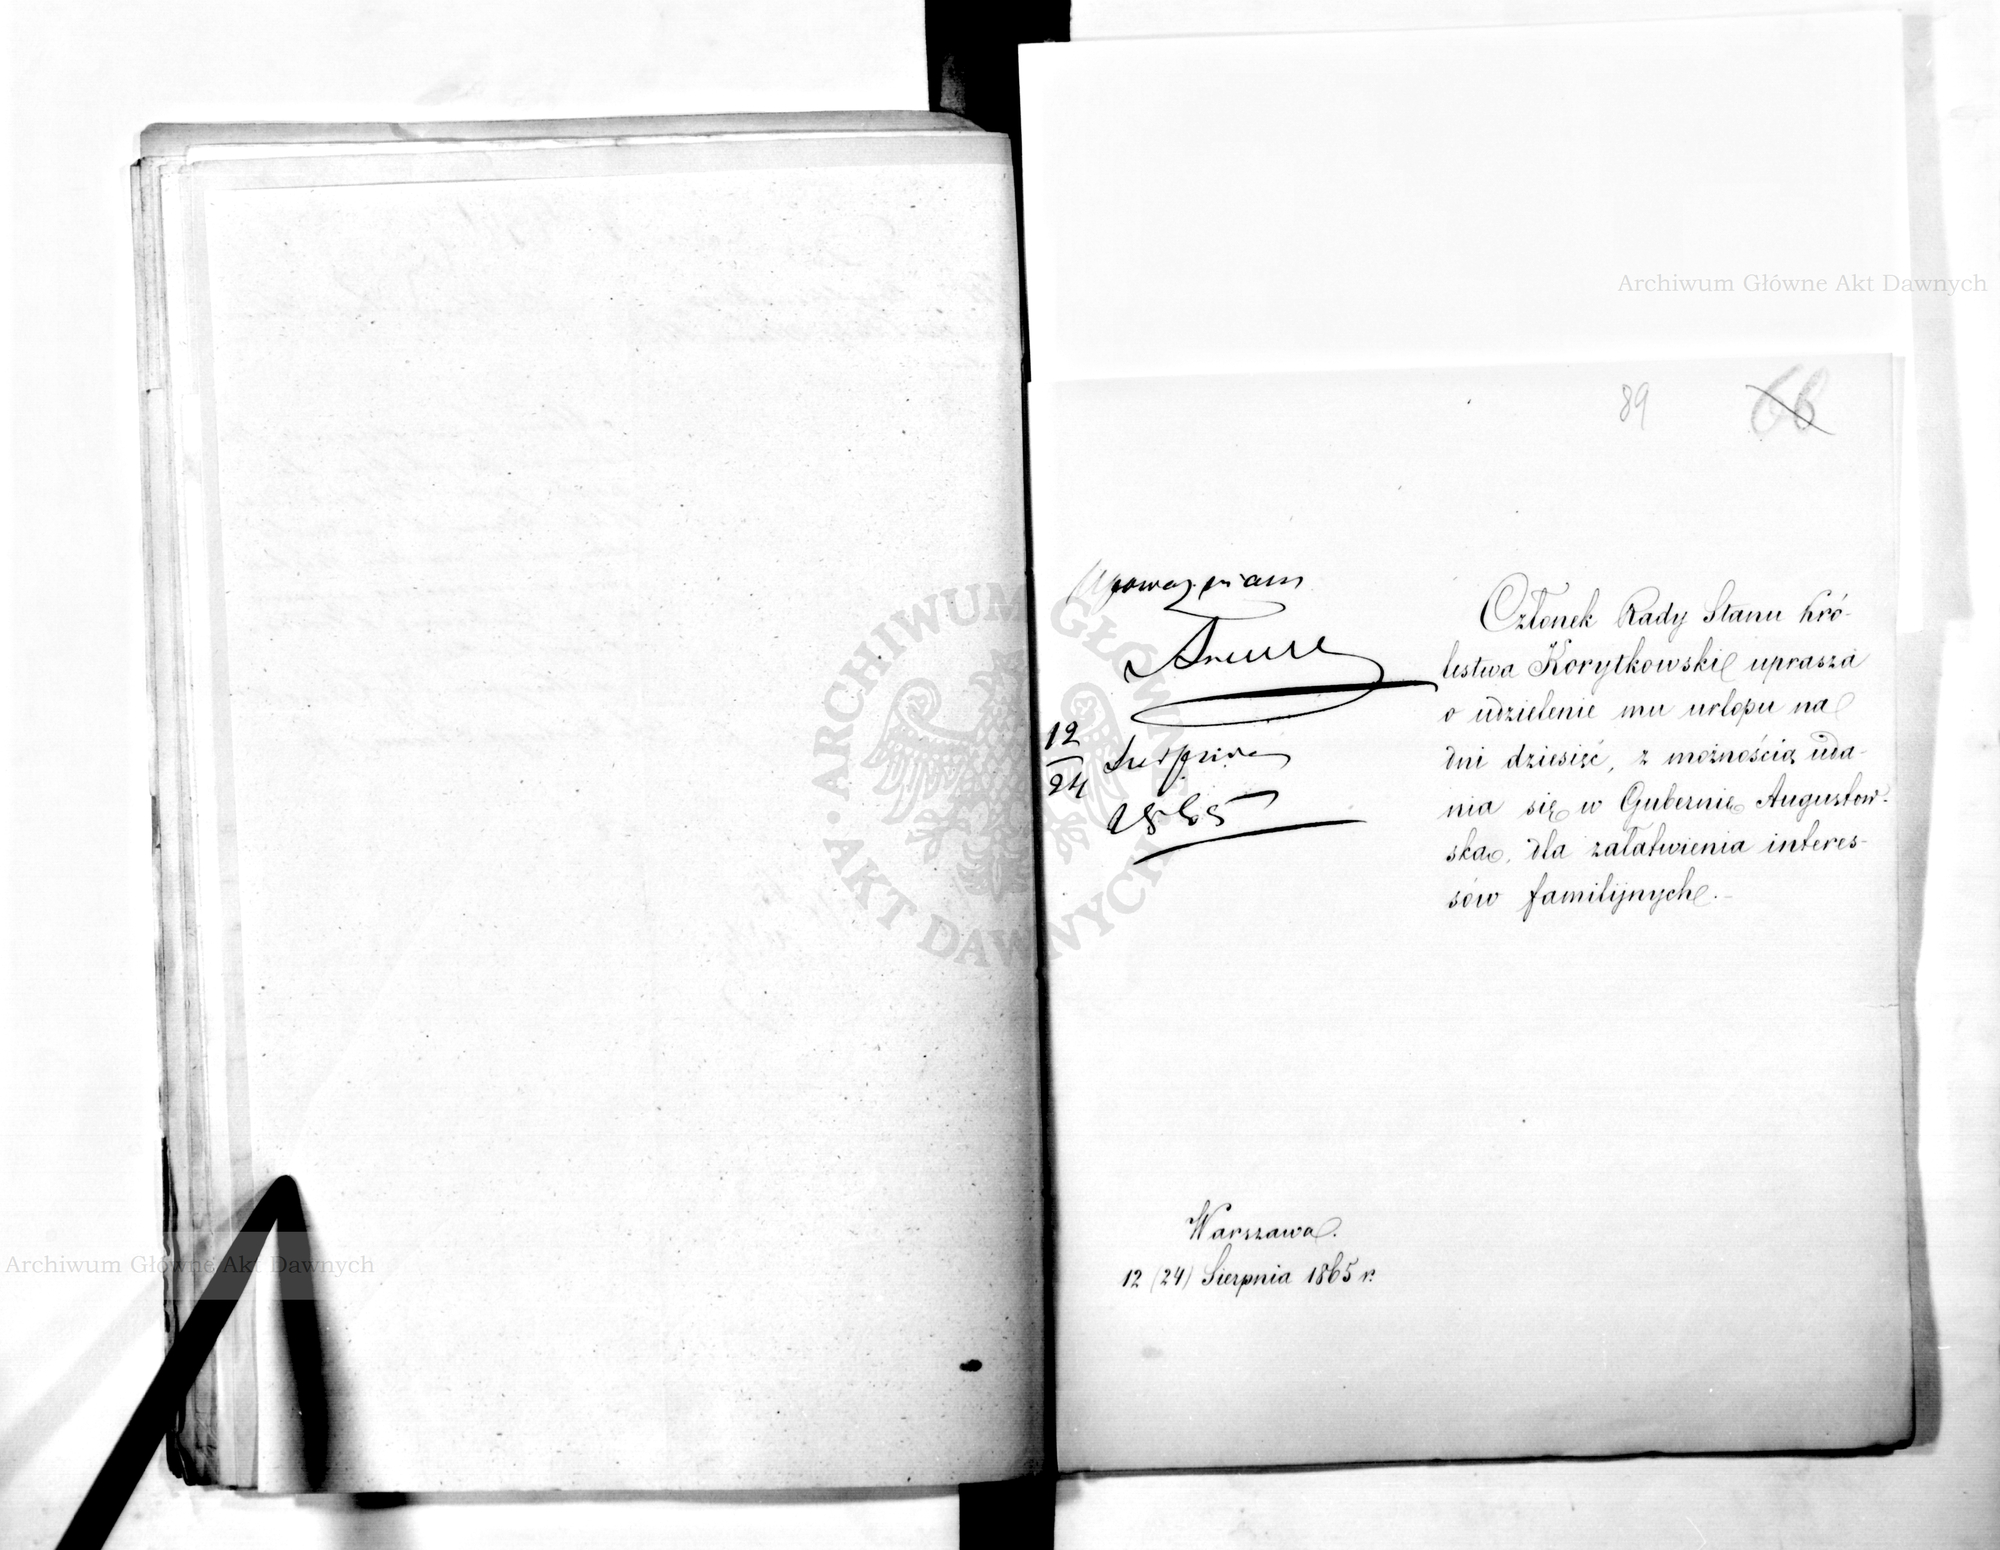 Archiwum Główne Akt Dawnych
89
66
Upoważniam
12
24
Sierpnia
1865
Członek Rady Stanu Kró-
lestwa Korytkowski uprasza
o udzielenie mu urlopu na
dni dziesięć, z możnością uda-
nia się w Gubernię Augustow-
ską, dla załatwienia interes-
sów familijnych.-
Warszawa.
12 (24) Sierpnia 1865 r.
ARCHIWUM GŁÓWNE
AKT DAWNYCH
Archiwum Główne Akt Dawnych